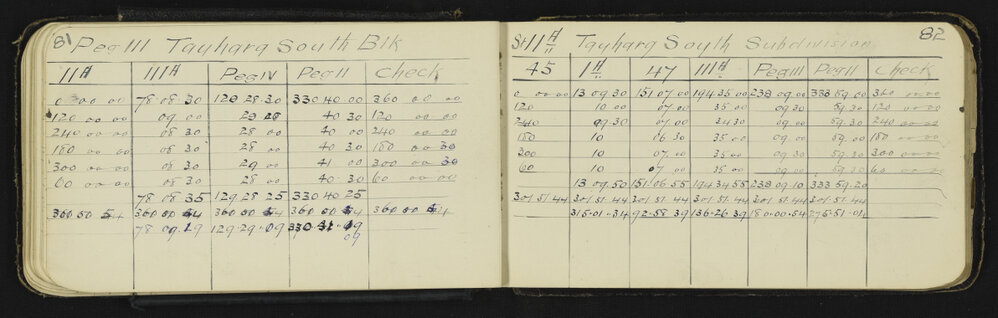 81 Peg III Tauhara South Blk
11A IIIA Peg IV Peg II Check
0 00 00 78 08 30 129 28 30 330 40 00 360 00 00
120 00 00 09 00 40 30 120 00 00
240 00 00 08 30 28 00 40 00 240 00 00
180 00 00 08 30 28 00 40 30 180 00 30
300 00 00 08 30 29 00 41 00 300 00 30
60 00 00 08 30 28 00 40 30 60 00 00
78 08 35 129 28 25 330 40 25
360 00 54 360 00 54 360 00 54 360 00 54
129 29 09
09
St 11A Tauhara South Subdivision 82
45 1A 47 IIIA Peg III Peg II Check
0 00 00 13 09 30 151 07 00 194 35 00 238 09 00 333 59 00 360 00 00
120 10 00 07 00 35 00 09 30 59 30 120 00 00
240 09 30 07 00 34 30 09 00 59 30 240 00 00
180 10 06 30 35 00 09 00 59 00 180 00 00
300 10 07 00 35 00 09 30 59 30 300 00 00
60 10 07 00 35 00 09 00 59 30 60 00 00
13 09 50 151 06 55 194 34 55 238 09 10 333 59 20
301 51 44 301 51 44 301 51 44 301 51 44 301 51 44 301 51 44
315 01 34 92 58 39 136 26 39 180 00 54 275 51 04